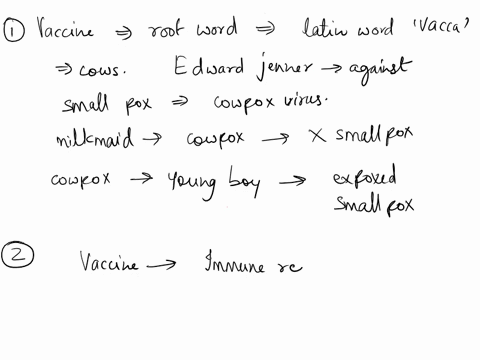 ① Vaccine ⇒ root word ⇒ latin word 'Vacca'
⇒ cows. Edward jenner → against
small pox ⇒ cowpox virus.
milkmaid → cowpox → X small pox
cowpox → young boy → exposed
small pox
② Vaccine → Immune re